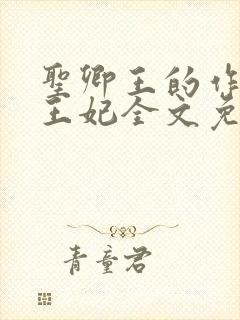 聖卿王的作
王妃全文免
青童君